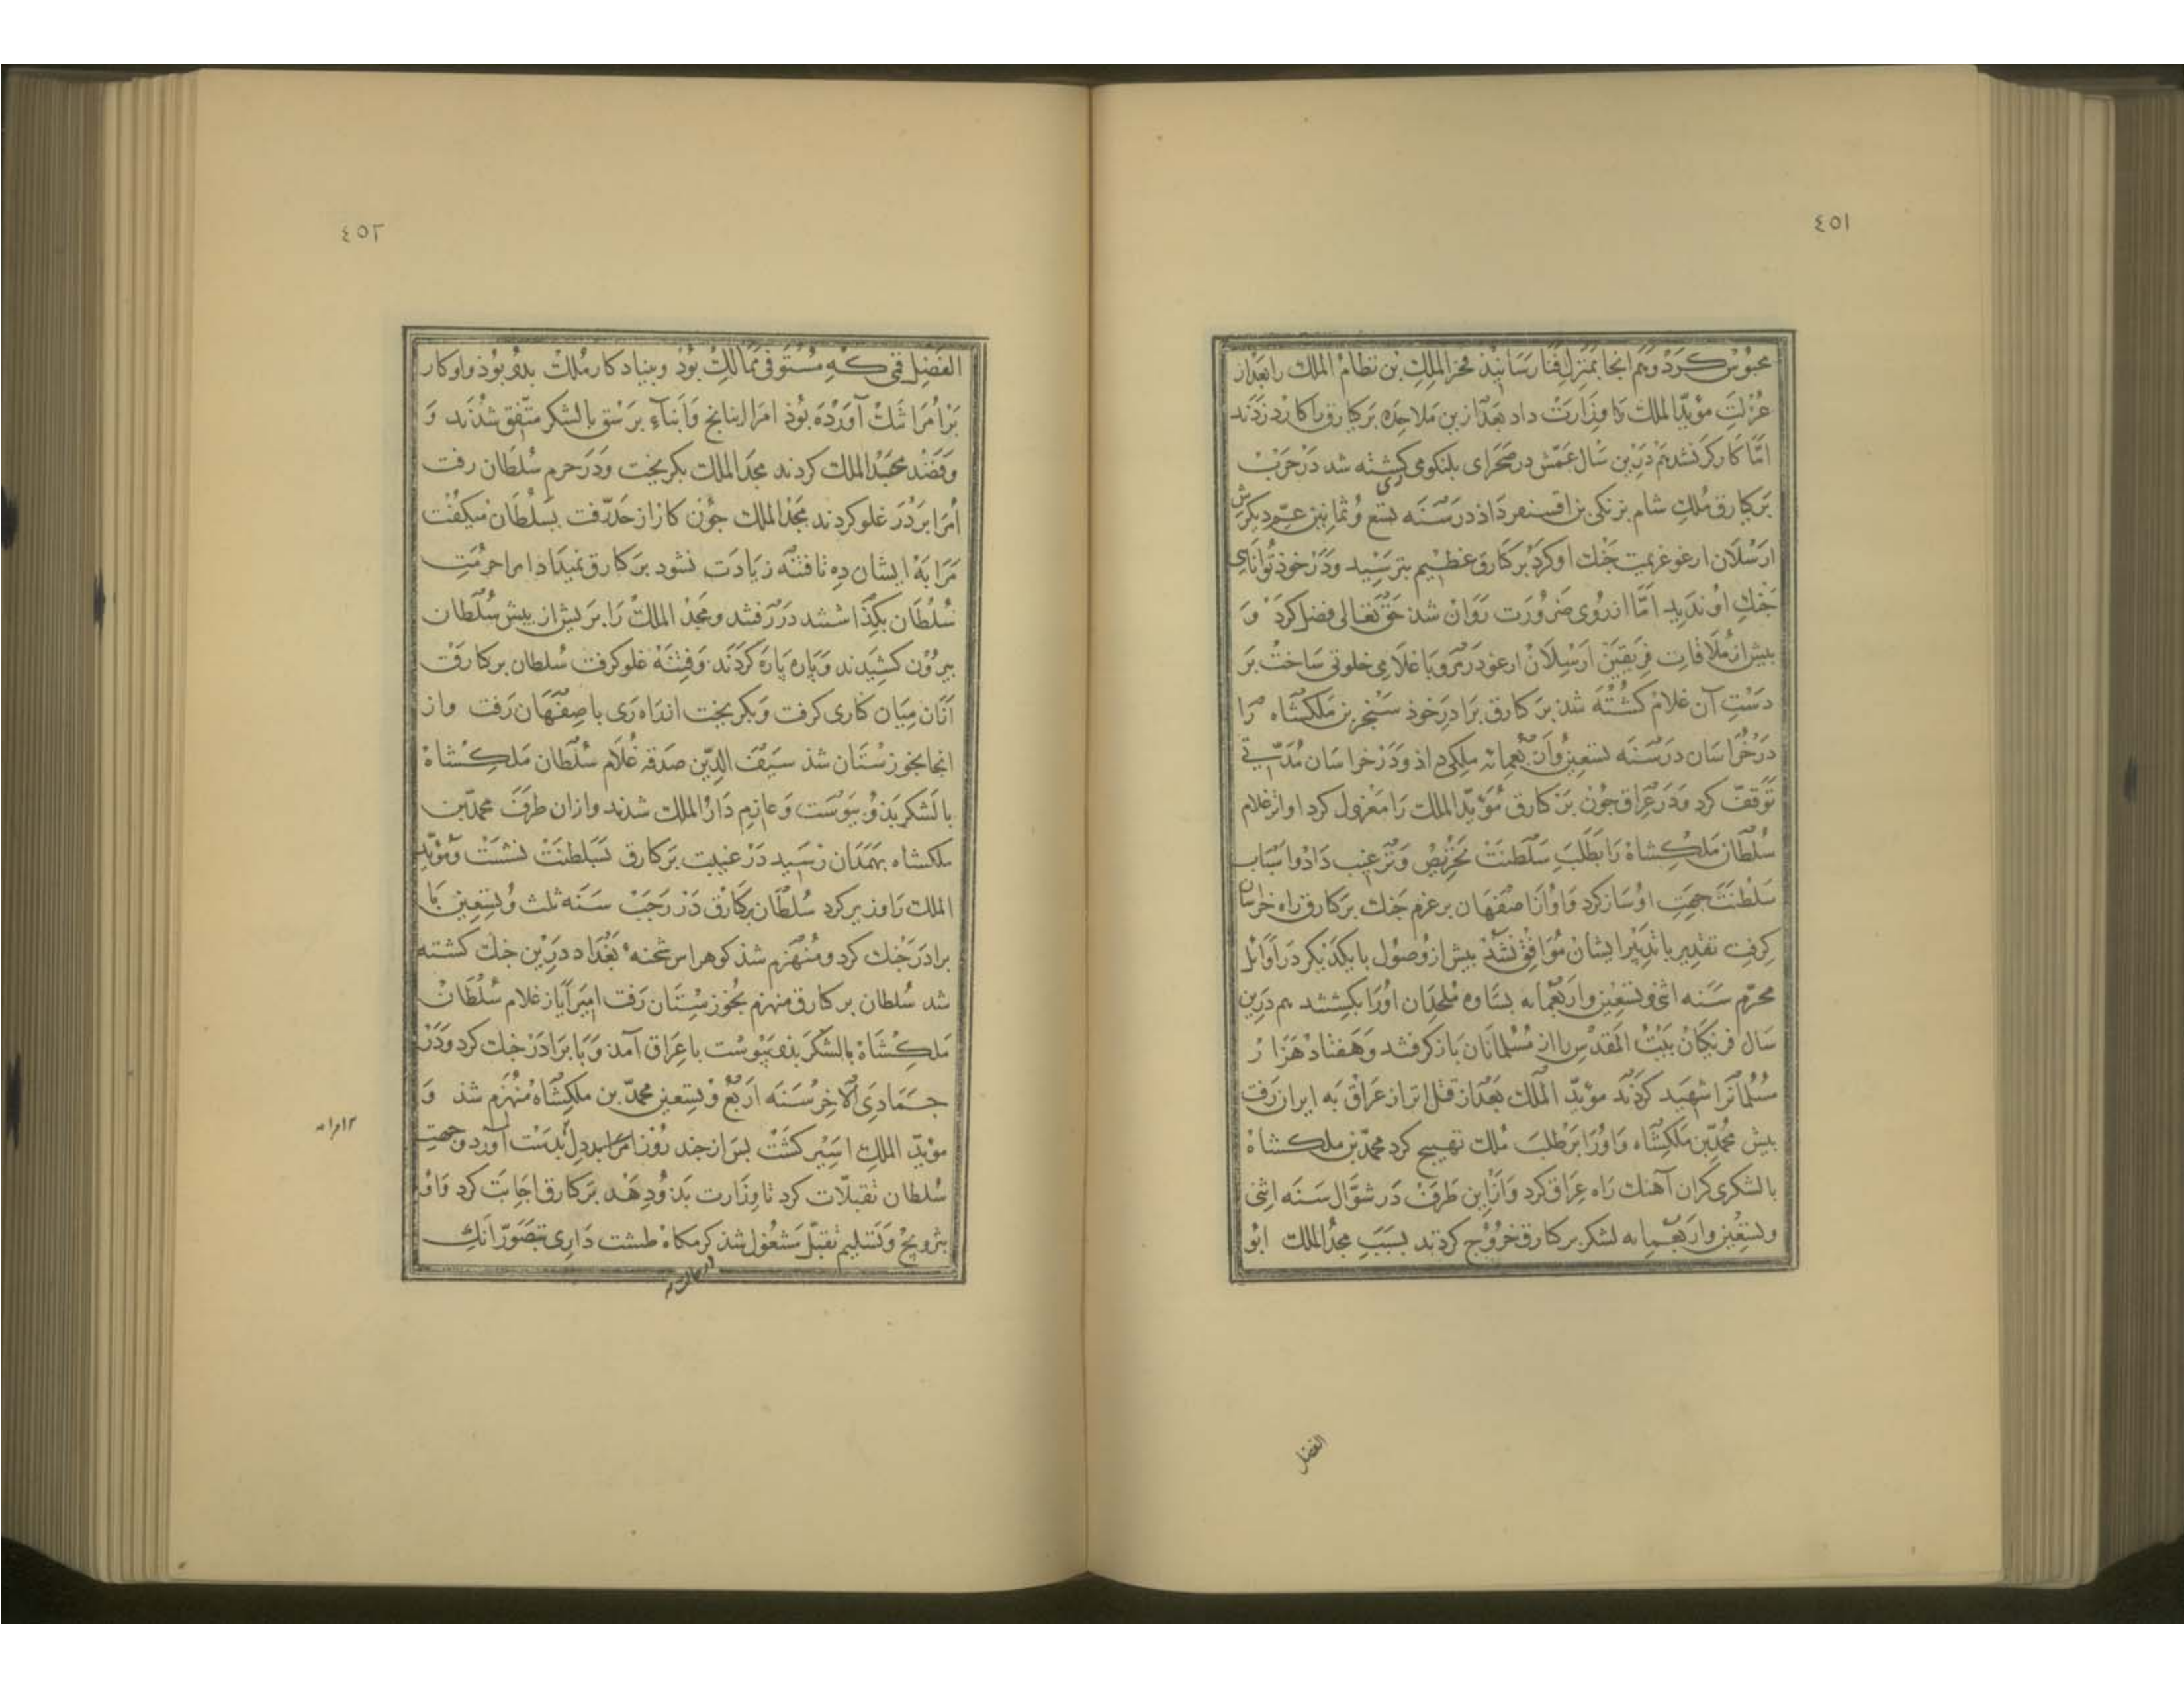 ٤٥١
محبوس کرد و هم انجا بمنزل فنا رسانید فخر الملک بن نظام الملک را بعد از
عزلت مؤید الملک با وزارت داد بعد ازین ملاحده برکیارق را کارد زدند
اما کارکر نشد هم درین سال عمّش در صحرای بلنکومی کشته شد در حرب
برکیارق ملک شام بزنکی بن اقسنقر داد در سنه تسع و ثمانین عم دیکرش
ارسلان ارغو عزیمت جنک او کرد برکارق عظیم بترسید و در خوذ توانای
جنک او ندید اما از روی ضرورت روان شذ حق تعالی فضل کرد و
بیش از ملاقات فریقین ارسلان ارغو در مرو با غلامی خلوتی ساخت بر
دست آن غلام کشته شذ برکارق برادر خوذ سنجر بن ملکشاه را
در خراسان در سنه تسعین و اربعمایه ملکی داذ و در خراسان مدتی
توقف کرد و در عراق جون برکارق مؤید الملک را معزول کرد او انر غلام
سلطان ملکشاه را بطلب سلطنت تحریص و ترغیب داد و اسباب
سلطنت جهت او ساز کرد و او از اصفهان بر عزم جنک برکارق راه خراسان
کرفت تقدیر با تدبیر ایشان موافق نشد بیش از وصول با یکدیکر در اوایل
محرم سنه اثنی و تسعین و اربعمایه بساوه ملحدان اورا بکشتند هم درین
سال فرنکان بیت المقدس را از مسلمانان باز کرفتند و هفتاد هزار
مسلمانرا شهید کردند مؤید الملک بعد از قتل انر از عراق به ایران رفت
بیش محمد بن ملکشاه و اورا بر طلب ملک تهییج کرد محمد بن ملکشاه
با لشکری کران آهنک راه عراق کرد و ازین طرف در شوال سنه اثنی
و تسعین و اربعمایه لشکر برکارق خروج کردند بسبب مجد الملک ابو
الفضل
٤٥٢
الفضل قمی که مستوفی ممالک بوذ و بنیاد کار ملک بدو بوذ و او کار
بر امرا تنک آورده بوذ امرا اینانج و ابناء برسق با لشکر متفق شدند و
و قصد مجد الملک کردند مجد الملک بکریخت و در حرم سلطان رفت
امرا بر در غلو کردند مجد الملک جون کار از حد رفت بسلطان میکفت
مرا به ایشان ده تا فتنه زیادت نشود برکارق نمیداد امرا حرمت
سلطان بکذاشتند در رفتند و مجد الملک را بر بش از بیش سلطان
بیرون کشیدند و پاره پاره کردند و فتنه غلو کرفت سلطان برکارق
از آن میان کناری کرفت و بکریخت از راه ری باصفهان رفت و از
انجا بخوزستان شذ سیف الدین صدقه غلام سلطان ملکشاه
با لشکر بذو بیوست و عازم دار الملک شدند و از ان طرف محمد بن
ملکشاه بهمدان رسید در غیبت برکارق بسلطنت نشست و مؤید
الملک را وزیر کرد سلطان برکارق در رجب سنه ثلث و تسعین با
برادر جنک کرد و منهزم شذ کوهراس شحنه بغداد درین جنک کشته
شد سلطان برکارق منهزم بخوزستان رفت امیر ایاز غلام سلطان
ملکشاه با لشکر بذو بیوست با عراق آمذ و با برادر جنک کرد و در
جمادی الاخر سنه اربع و تسعین محمد بن ملکشاه منهزم شذ و
مؤید الملک اسیر کشت بس از جند روز امرا بدل بدست آورد و جهت
سلطان تقبلات کرد تا وزارت بذو دهد برکارق اجابت کرد و او
بترویج و تسلیم تقبل مشغول شذ کرمکاه طشت داری بتصور آنک